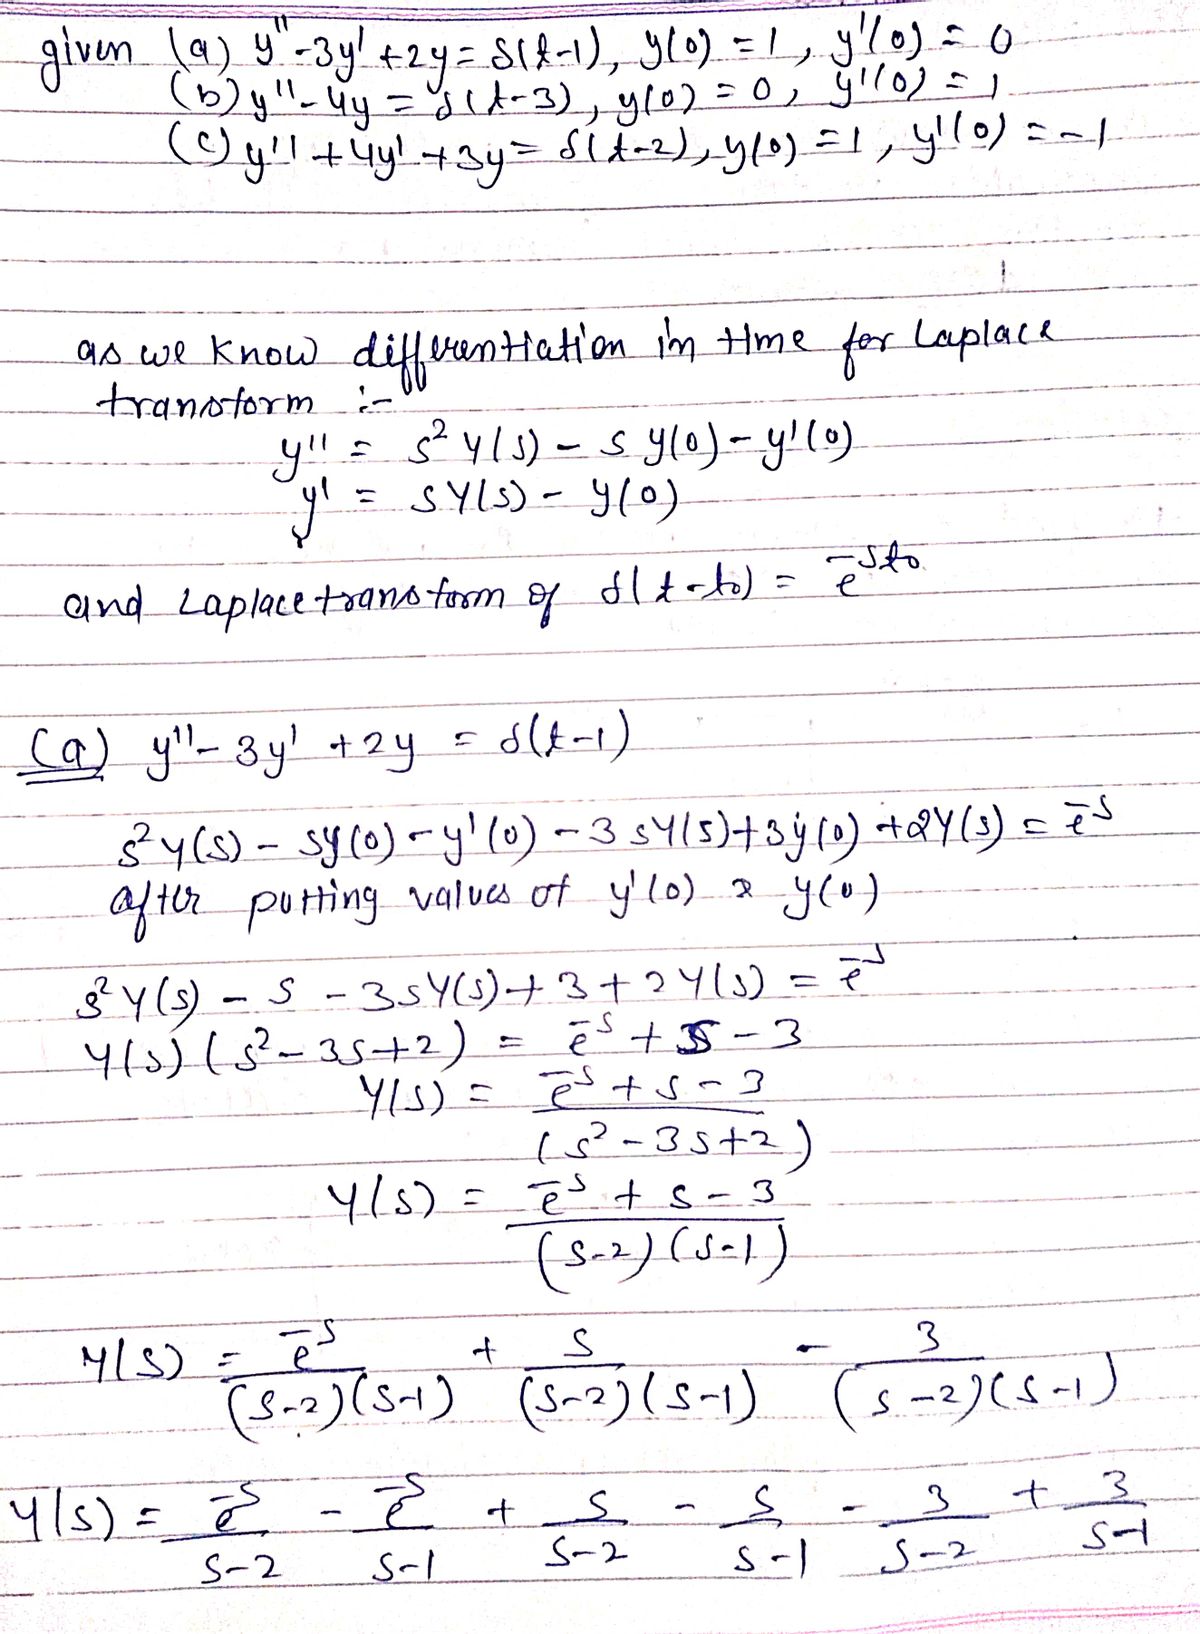 given (a) y'' - 3y' + 2y = δ(t-1), y(0) = 1, y'(0) = 0
(b) y'' - 4y = δ(t-3), y(0) = 0, y'(0) = 1
(c) y'' + 4y' + 3y = δ(t-2), y(0) = 1, y'(0) = -1
as we know differentiation in time for Laplace
transform :-
y'' = s² Y(s) - s y(0) - y'(0)
y' = sY(s) - y(0)
and Laplace transform of δ(t-t₀) = e^{-st₀}
(a) y'' - 3y' + 2y = δ(t-1)
s² Y(s) - sy(0) - y'(0) - 3sY(s) + 3y(0) + 2Y(s) = e^{-s}
after putting values of y'(0) & y(0)
s² Y(s) - s - 3sY(s) + 3 + 2Y(s) = e^{-s}
Y(s) (s² - 3s + 2) = e^{-s} + s - 3
Y(s) = e^{-s} + s - 3
(s² - 3s + 2)
Y(s) = e^{-s} + s - 3
(s-2)(s-1)
Y(s) = e^{-s} + s - 3
(s-2)(s-1) (s-2)(s-1) (s-2)(s-1)
Y(s) = e^{-s} - e^{-s} + s - s - 3 + 3
s-2 s-1 s-2 s-1 s-2 s-1